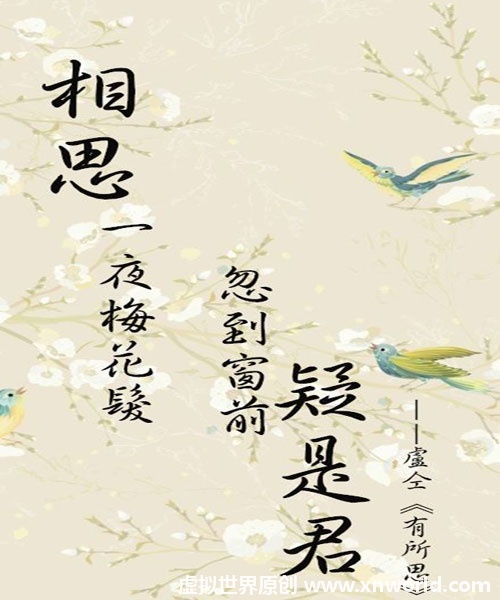 相思
一夜梅花髮
忽到窗前
疑是君
——盧仝《有所思
虚拟世界原创 www.xnworld.com